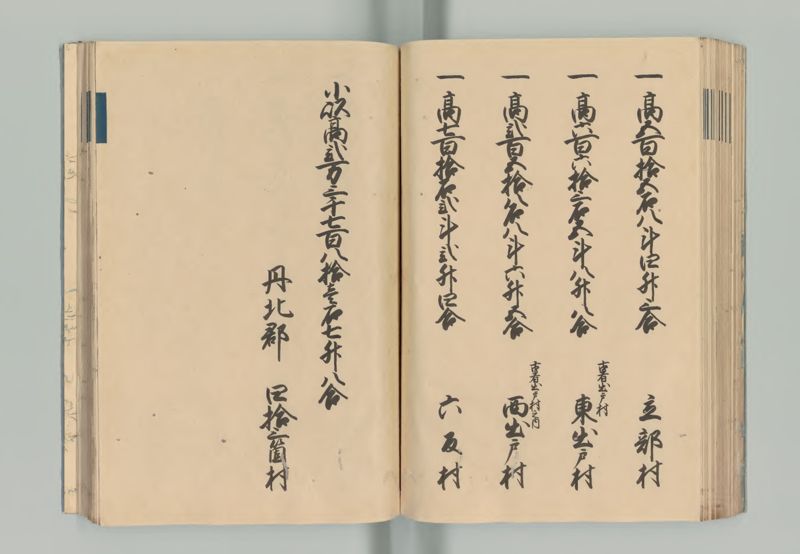 一高五百拾五石八斗四升三合 立部村
一高六百六拾三石五斗八升八合 古者出戸村 東出戸村
一高弐百五拾八石八斗六升五合 古者出戸村之内 西出戸村
一高七百拾石弐斗弐升四合 六反村
小以高弐万三千七百八拾壱石七升八合
丹北郡 四拾三箇村